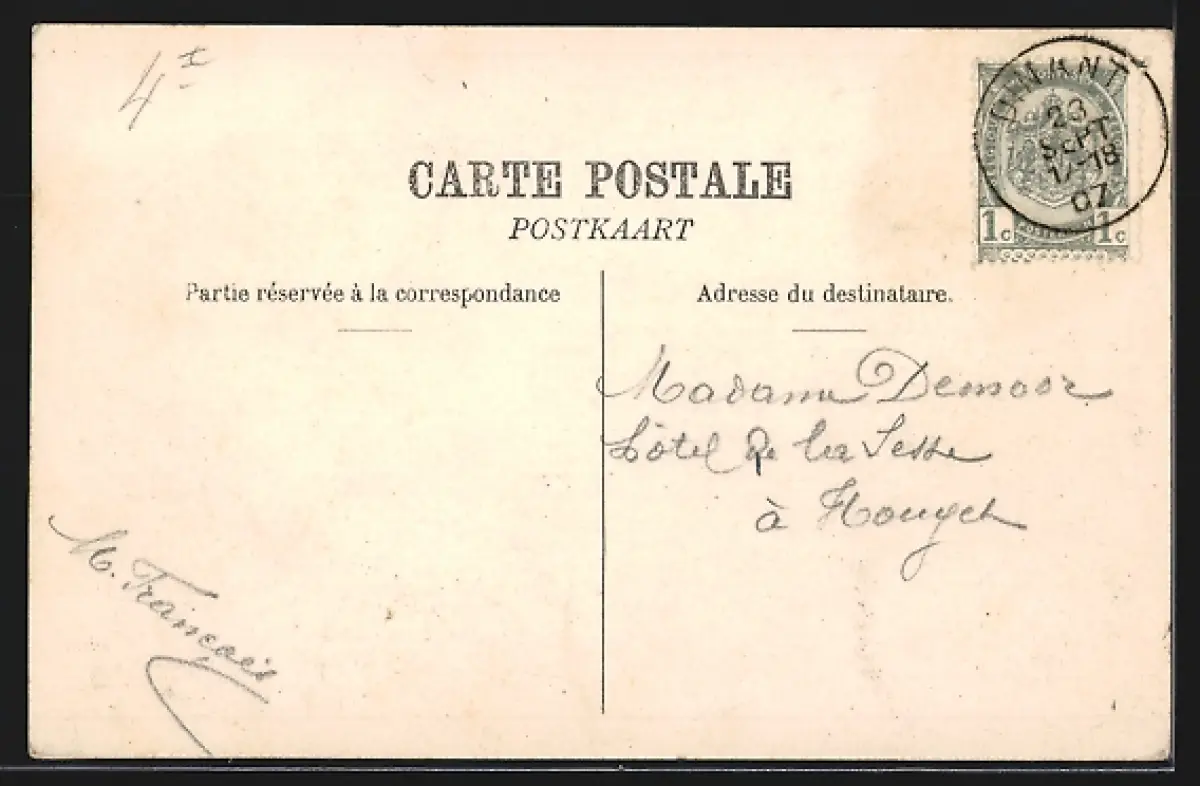 4
DINANT
23
SEPT
17-18
07
1c 1c
CARTE POSTALE
POSTKAART
Partie réservée à la correspondance
Adresse du destinataire.
Madame Demoor
hôtel de la Lesse
à Houyet
M. François